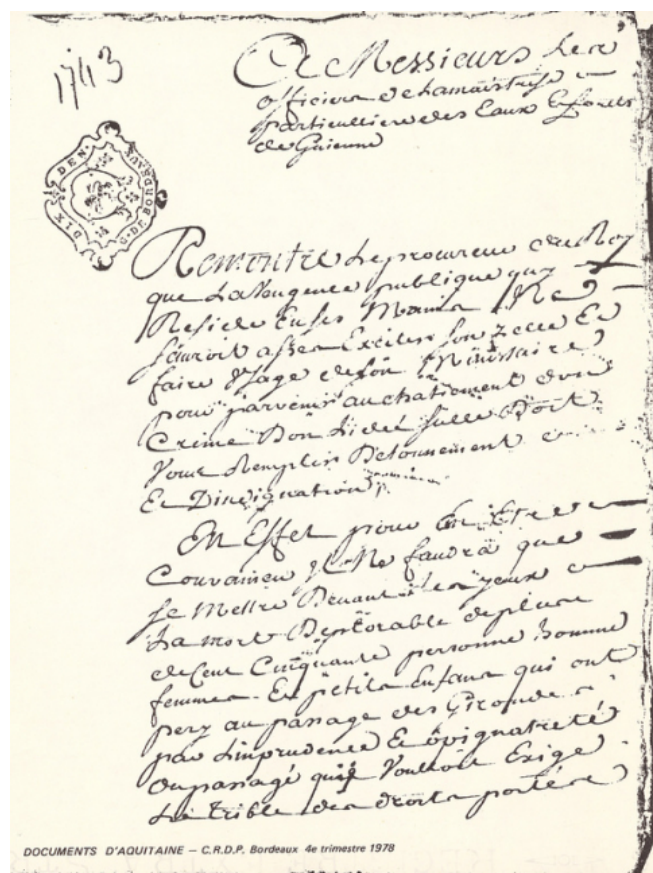 1743
A Messieurs Les
officiers de Lamaitrise
particulliere des Eaux Et forets
de Guienne
DIX DEN.
G. DE BORDEAUX
Remontre Le procureur du Roy
que La Vengence publique quy
Reside En ses Mains Ne
sauroit asses Exciter son zelle Et
faire Usage de son Ministaire
pour parvenir au chatiement d'un
Crime Don Lideé sulle Doit
Vous Remplir Detonnement
Et Dindignation,
En Effet pour En Etre
Convaincu Il Ne faudra que
se Mettre Devant Les yeux
La mort Deplorable de plus
de Cent Cinquante personne homme
femmes Et petits Enfans qui ont
pery au passage des Gironde
par Limprudence & opignatreté
du passagé quy Vouloit Exige
Le trible des droits portés
DOCUMENTS D'AQUITAINE – C.R.D.P. Bordeaux 4e trimestre 1978